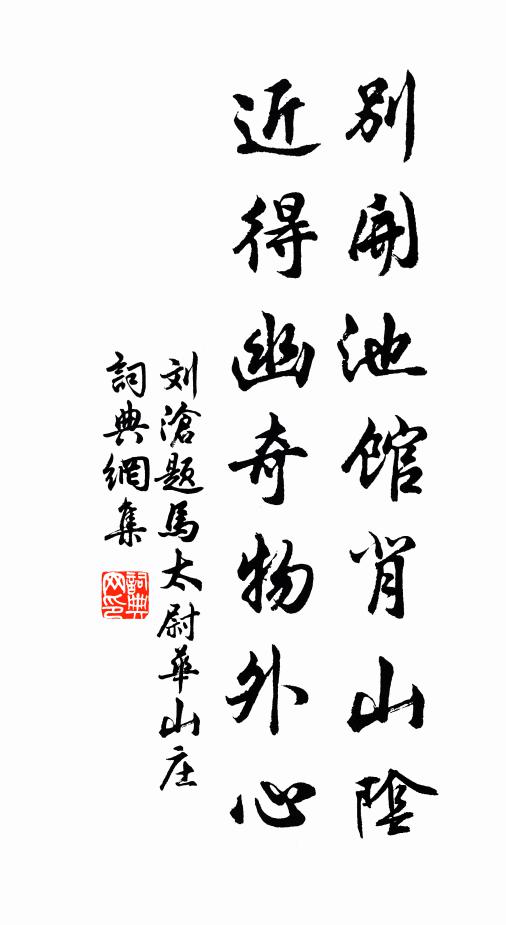 別開池館背山陰
近得幽奇物外心
刘滄題馬太尉華山庄
詞典網集
詞典网印